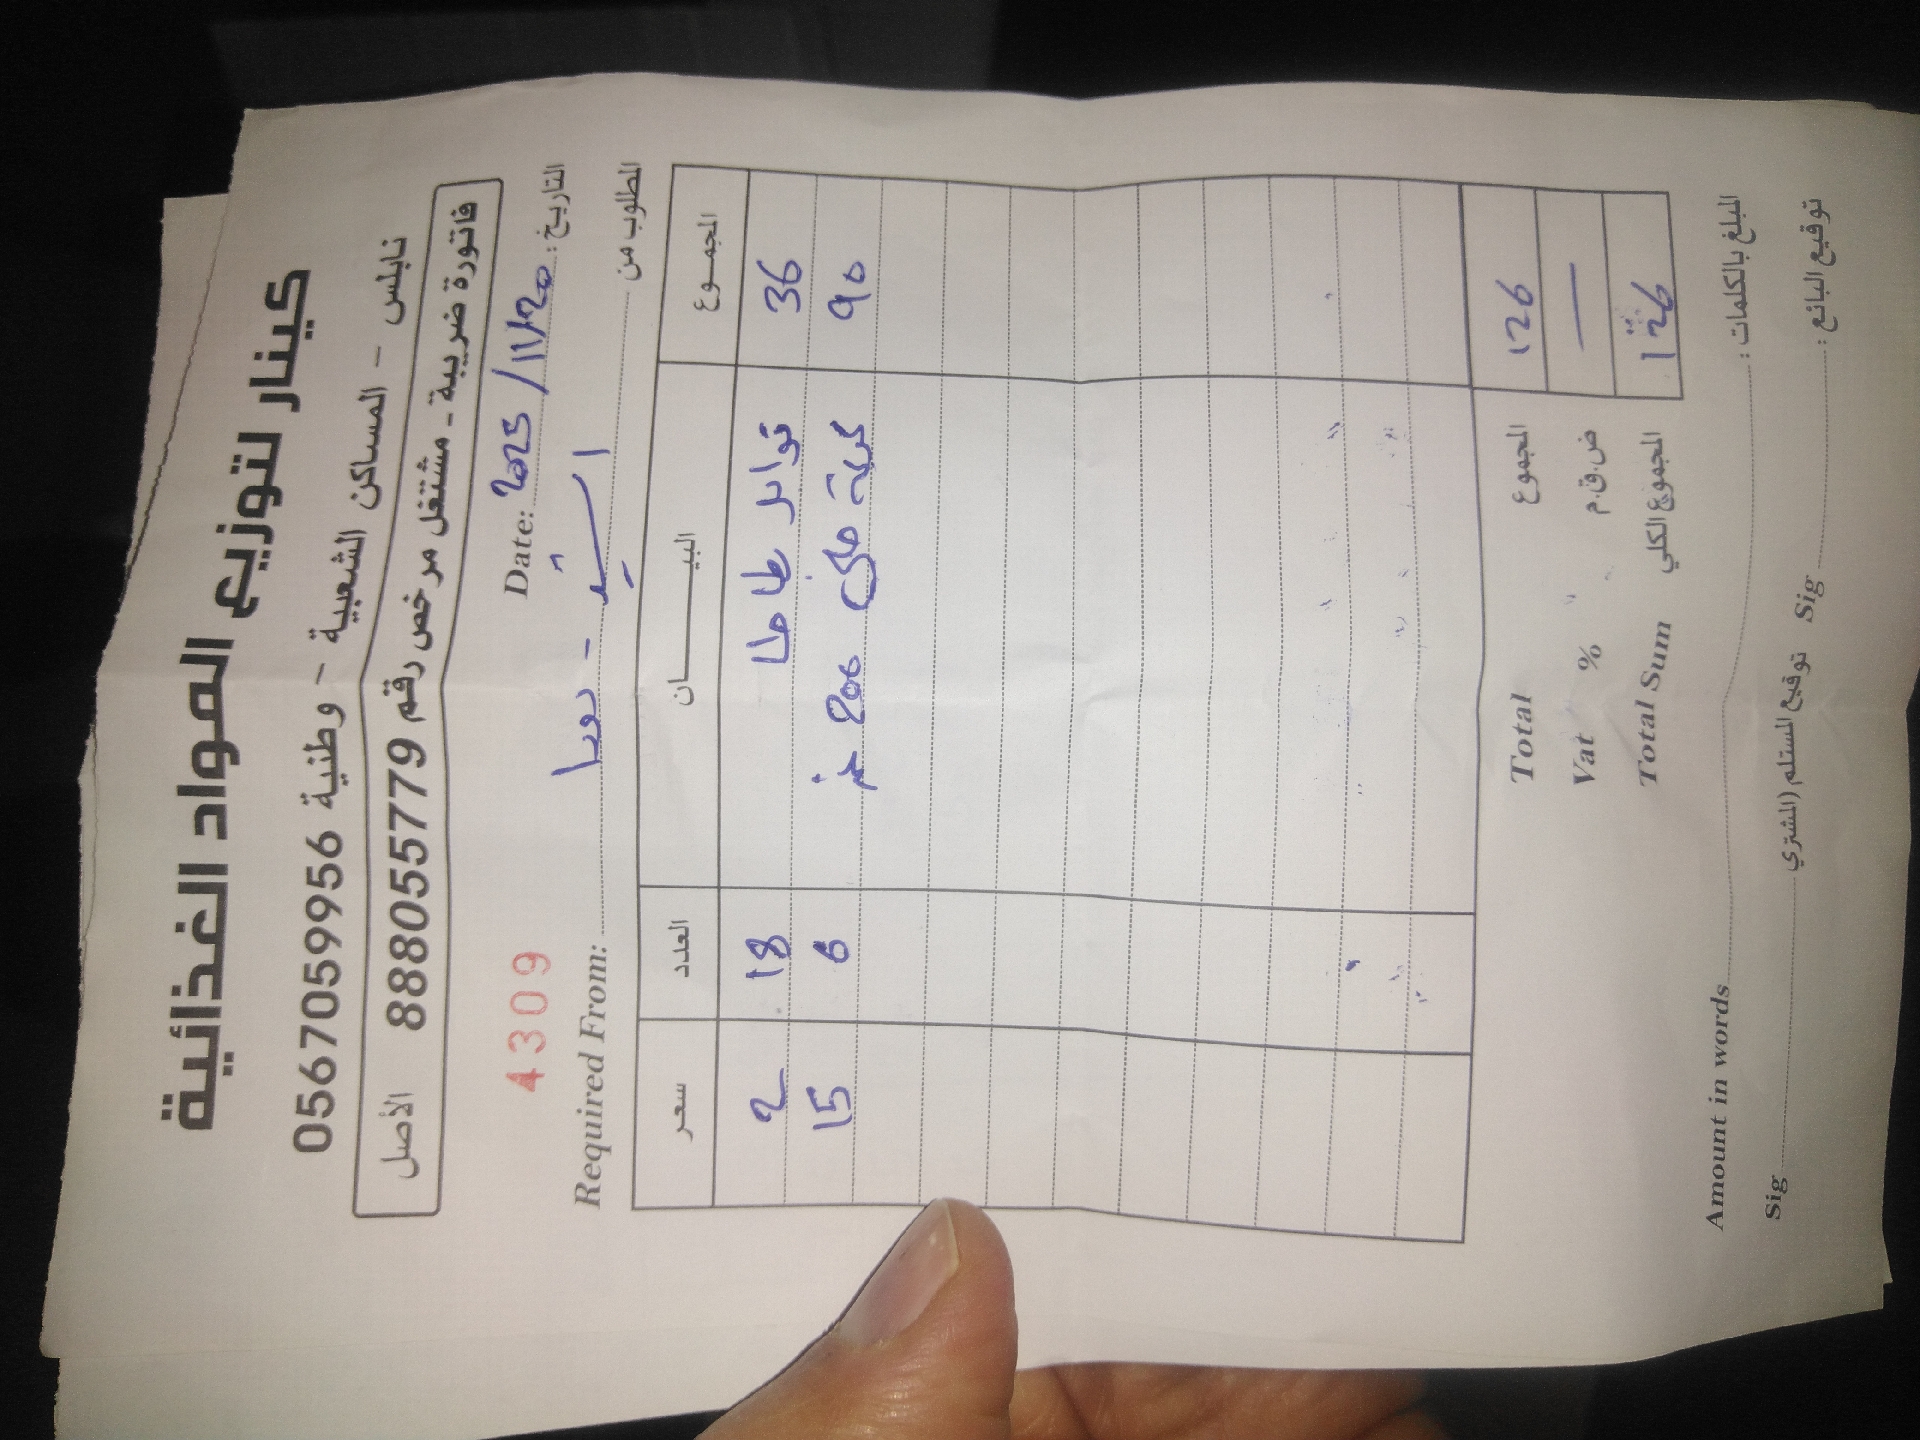 كينار لتوزيع المواد الغذائية
نابلس - المساكن الشعبية - وطنية 0567059956
فاتورة ضريبية - مشتغل مرخص رقم 888055779 الأصل
4309 Date: 2025/11/20 التاريخ:
Required From: المطلوب من
سعر العدد البيـــــــان المجمـوع
2 18 توابل 36
15 6 200 90
Total المجموع 126
Vat % ض.ق.م —
Total Sum المجموع الكلي 126
Amount in words المبلغ بالكلمات:
Sig توقيع المستلم (المشتري Sig توقيع البائع: